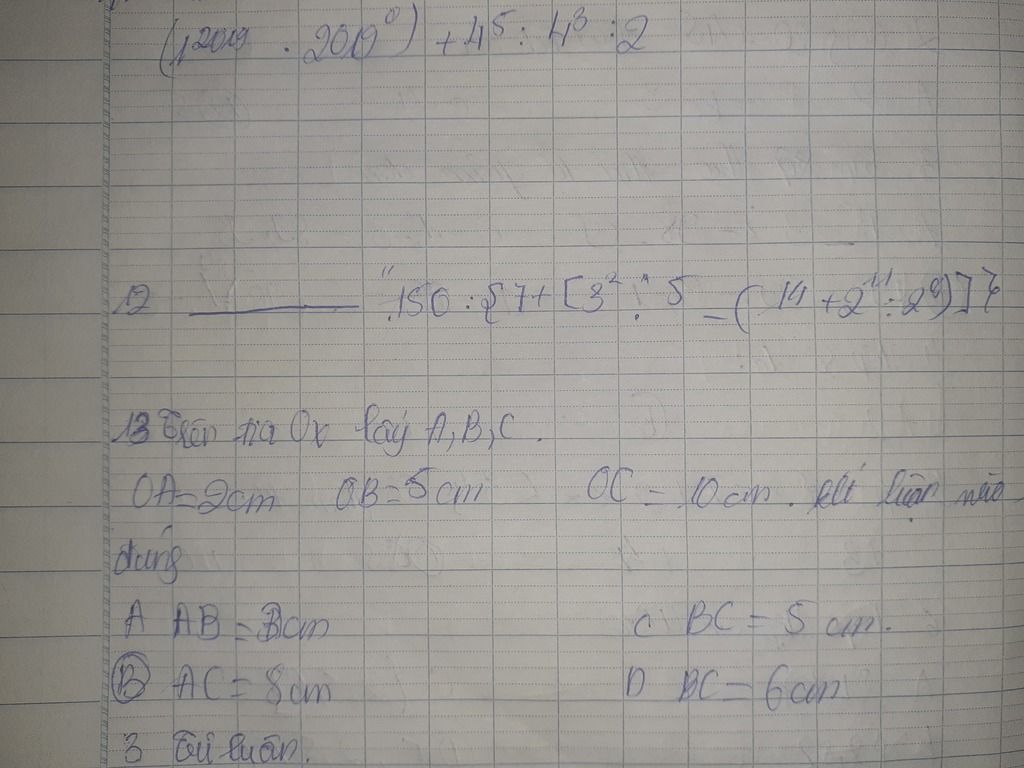 (1²⁰¹⁹ . 2019⁰) + 4⁵ : 4³ : 2
12 ——— " 150 : {7 + [3² " . 5 – (14 + 2¹¹ : 2⁸)]}
13 Trên tia Ox lấy A, B, C.
OA = 2cm OB = 5cm OC – 10cm . kết luận nào
đúng
A AB = 3cm C BC = 5 cm.
B AC = 8cm D BC = 6cm
3 Tự luận.